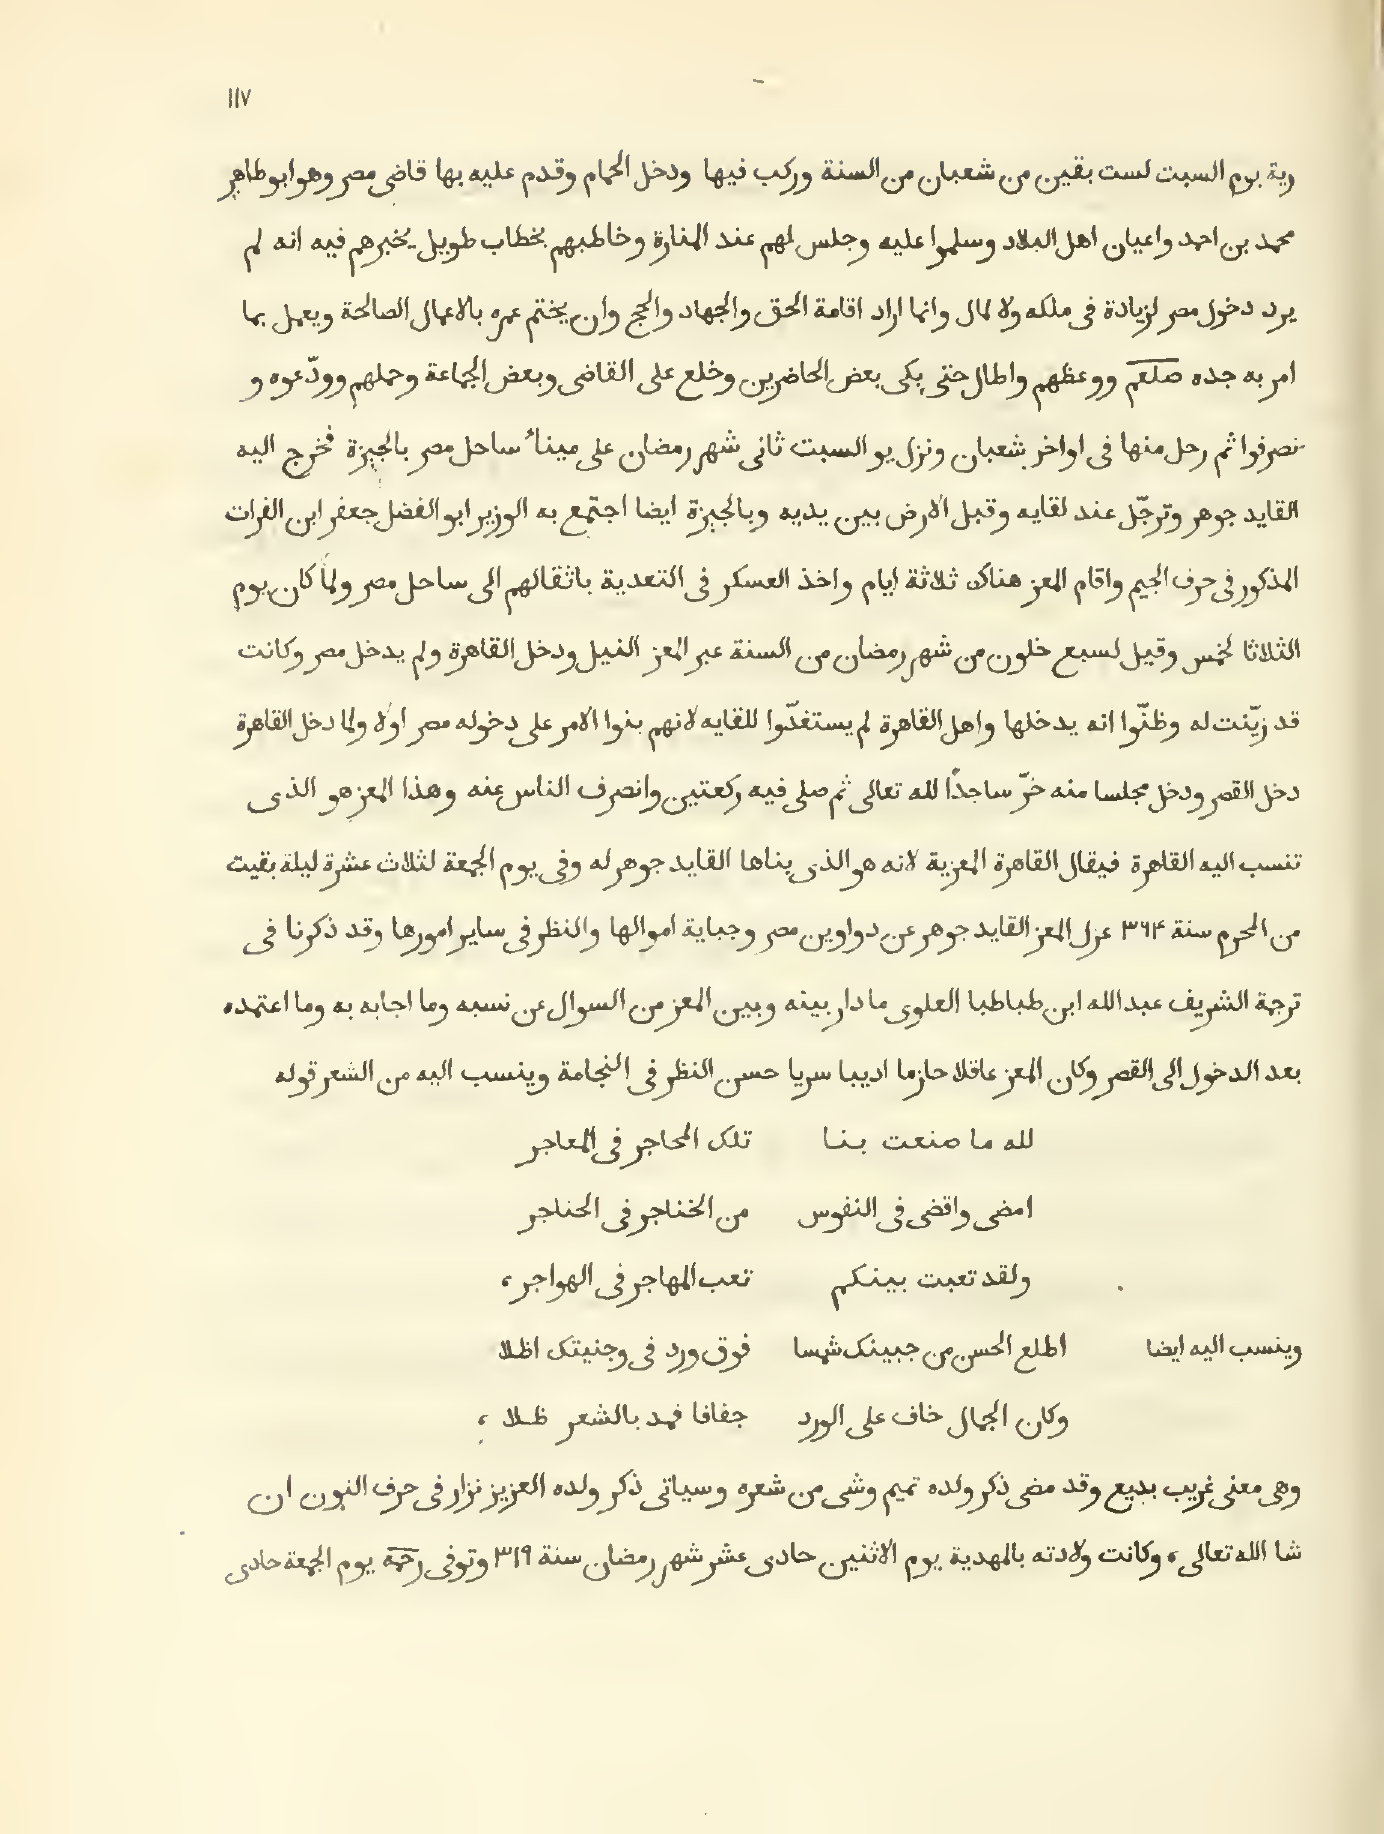 ١١٧
رية يوم السبت لست بقين من شعبان من السنة وركب فيها ودخل الحمام وقدم عليه بها قاضى مصر وهو ابو طاهر
محمد بن احمد واعيان اهل البلاد وسلموا عليه وجلس لهم عند المنارة وخاطبهم بخطاب طويل يخبرهم فيه انه لم
يرد دخول مصر لزيادة فى ملكه ولا لمال وانما اراد اقامة الحق والجهاد والحج وان يختم عمره بالاعمال الصالحة ويعمل بما
امر به جده صلعم ووعظهم واطال حتى بكى بعض الحاضرين وخلع على القاضى وبعض الجماعة وحملهم وودّعوه و
نصرفوا ثم رحل منها فى اواخر شعبان ونزل يو السبت ثانى شهر رمضان على ميناء ساحل مصر بالجيزة فخرج اليه
القايد جوهر وترجّل عند لقايه وقبل الارض بين يديه وبالجيزة ايضا اجتمع به الوزير ابو الفضل جعفر ابن الفرات
المذكور فى حرف الجيم واقام المعز هناك ثلاثة ايام واخذ العسكر فى التعدية باثقالهم الى ساحل مصر ولما كان يوم
الثلاثا لخمس وقيل لسبع خلون من شهر رمضان من السنة عبر المعز النيل ودخل القاهرة ولم يدخل مصر وكانت
قد زيّنت له وظنّوا انه يدخلها واهل القاهرة لم يستعدّوا للقايه لانهم بنوا الامر على دخوله مصر اولا ولما دخل القاهرة
دخل القصر ودخل مجلسا منه خرّ ساجدًا لله تعالى ثم صلى فيه ركعتين وانصرف الناس عنه وهذا المعز هو الذى
تنسب اليه القاهرة فيقال القاهرة المعزية لانه هو الذى بناها القايد جوهر له وفى يوم الجمعة لثلاث عشرة ليلة بقيت
من المحرم سنة ٣٦۴ عزل المعز القايد جوهر عن دواوين مصر وجباية اموالها والنظر فى ساير امورها وقد ذكرنا فى
ترجمة الشريف عبد الله ابن طباطبا العلوى ما دار بينه وبين المعز من السوال عن نسبه وما اجابه به وما اعتمده
بعد الدخول الى القصر وكان المعز عاقلا حازما اديبا سريا حسن النظر فى النجامة وينسب اليه من الشعر قوله
لله ما صنعت بنا تلك المحاجر فى المعاجر
امضى واقضى فى النفوس من الخناجر فى الحناجر
ولقد تعبت بينكم تعب المهاجر فى الهواجر،
وينسب اليه ايضا اطلع الحسن من جبينك شمسا فوق ورد فى وجنيتك اظلا
وكان الجمال خاف على الورد جفافا فمد بالشعر ظلا ،
وهى معنى غريب بديع وقد مضى ذكر ولده تميم وشى من شعره وسياتى ذكر ولده العزيز نزار فى حرف النون ان
شا الله تعالى، وكانت ولادته بالمهدية يوم الاثنين حادى عشر شهر رمضان سنة ٣١٩ وتوفى رحمة يوم الجمعة حادى